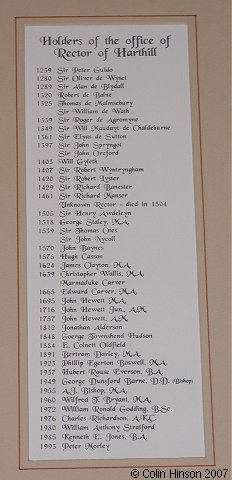 Holders of the office of
Rector of Harthill
1259 Sir Peter Guido
1280 Sir Oliver de Wynet
1289 Sir Alan de Blydall
1320 Robert de Balne
1325 Thomas de Malmsebury
Sir William de Wath
1339 Sir Roger de Agromyne
1349 Sir Will Maudayt de Chaldehurne
1361 Sir Elyas de Sutton
1397 Sir John Spryngoi
Sir John Oreford
1403 Will Gyleth
1407 Sir Robert Wyntryngham
1420 Sir Robert Lyster
1429 Sir Richard Banester
1461 Sir Richard Manser
Unknown Rector - died in 1504
1505 Sir Henry Awdeleyn
1518 George Staley, M.A.
1539 Sir Thomas Otes
Sir John Nycoll
1570 John Baynes
1575 Hugh Casson
1624 James Clayton, M.A.
1639 Christopher Wallis, M.A.
Marmaduke Carver
1665 Edward Carver, M.A.
1695 John Hewitt M.A.
1716 John Hewitt Jun., A.M.
1757 John Hewitt, A.M.
1812 Jonathan Alderson
1848 George Townshend Hudson
1884 E. Colnett Oldfield
1891 Bertram Darley, M.A.
1923 Phillip Egerton Boswell, M.A.
1937 Hubert Rouse Everson, B.A.
1949 George Dunsford Barne, D.D. (Bishop)
1955 A.J. Bishop, M.A.
1960 Wilfred T. Bryant, M.A.
1972 William Ronald Godding, B.Sc.
1976 Charles Richardson, A.K.C.
1980 William Anthony Stratford
1985 Kenneth E. Jones, B.A.
1993 Peter Morley
© Colin Hinson 2007